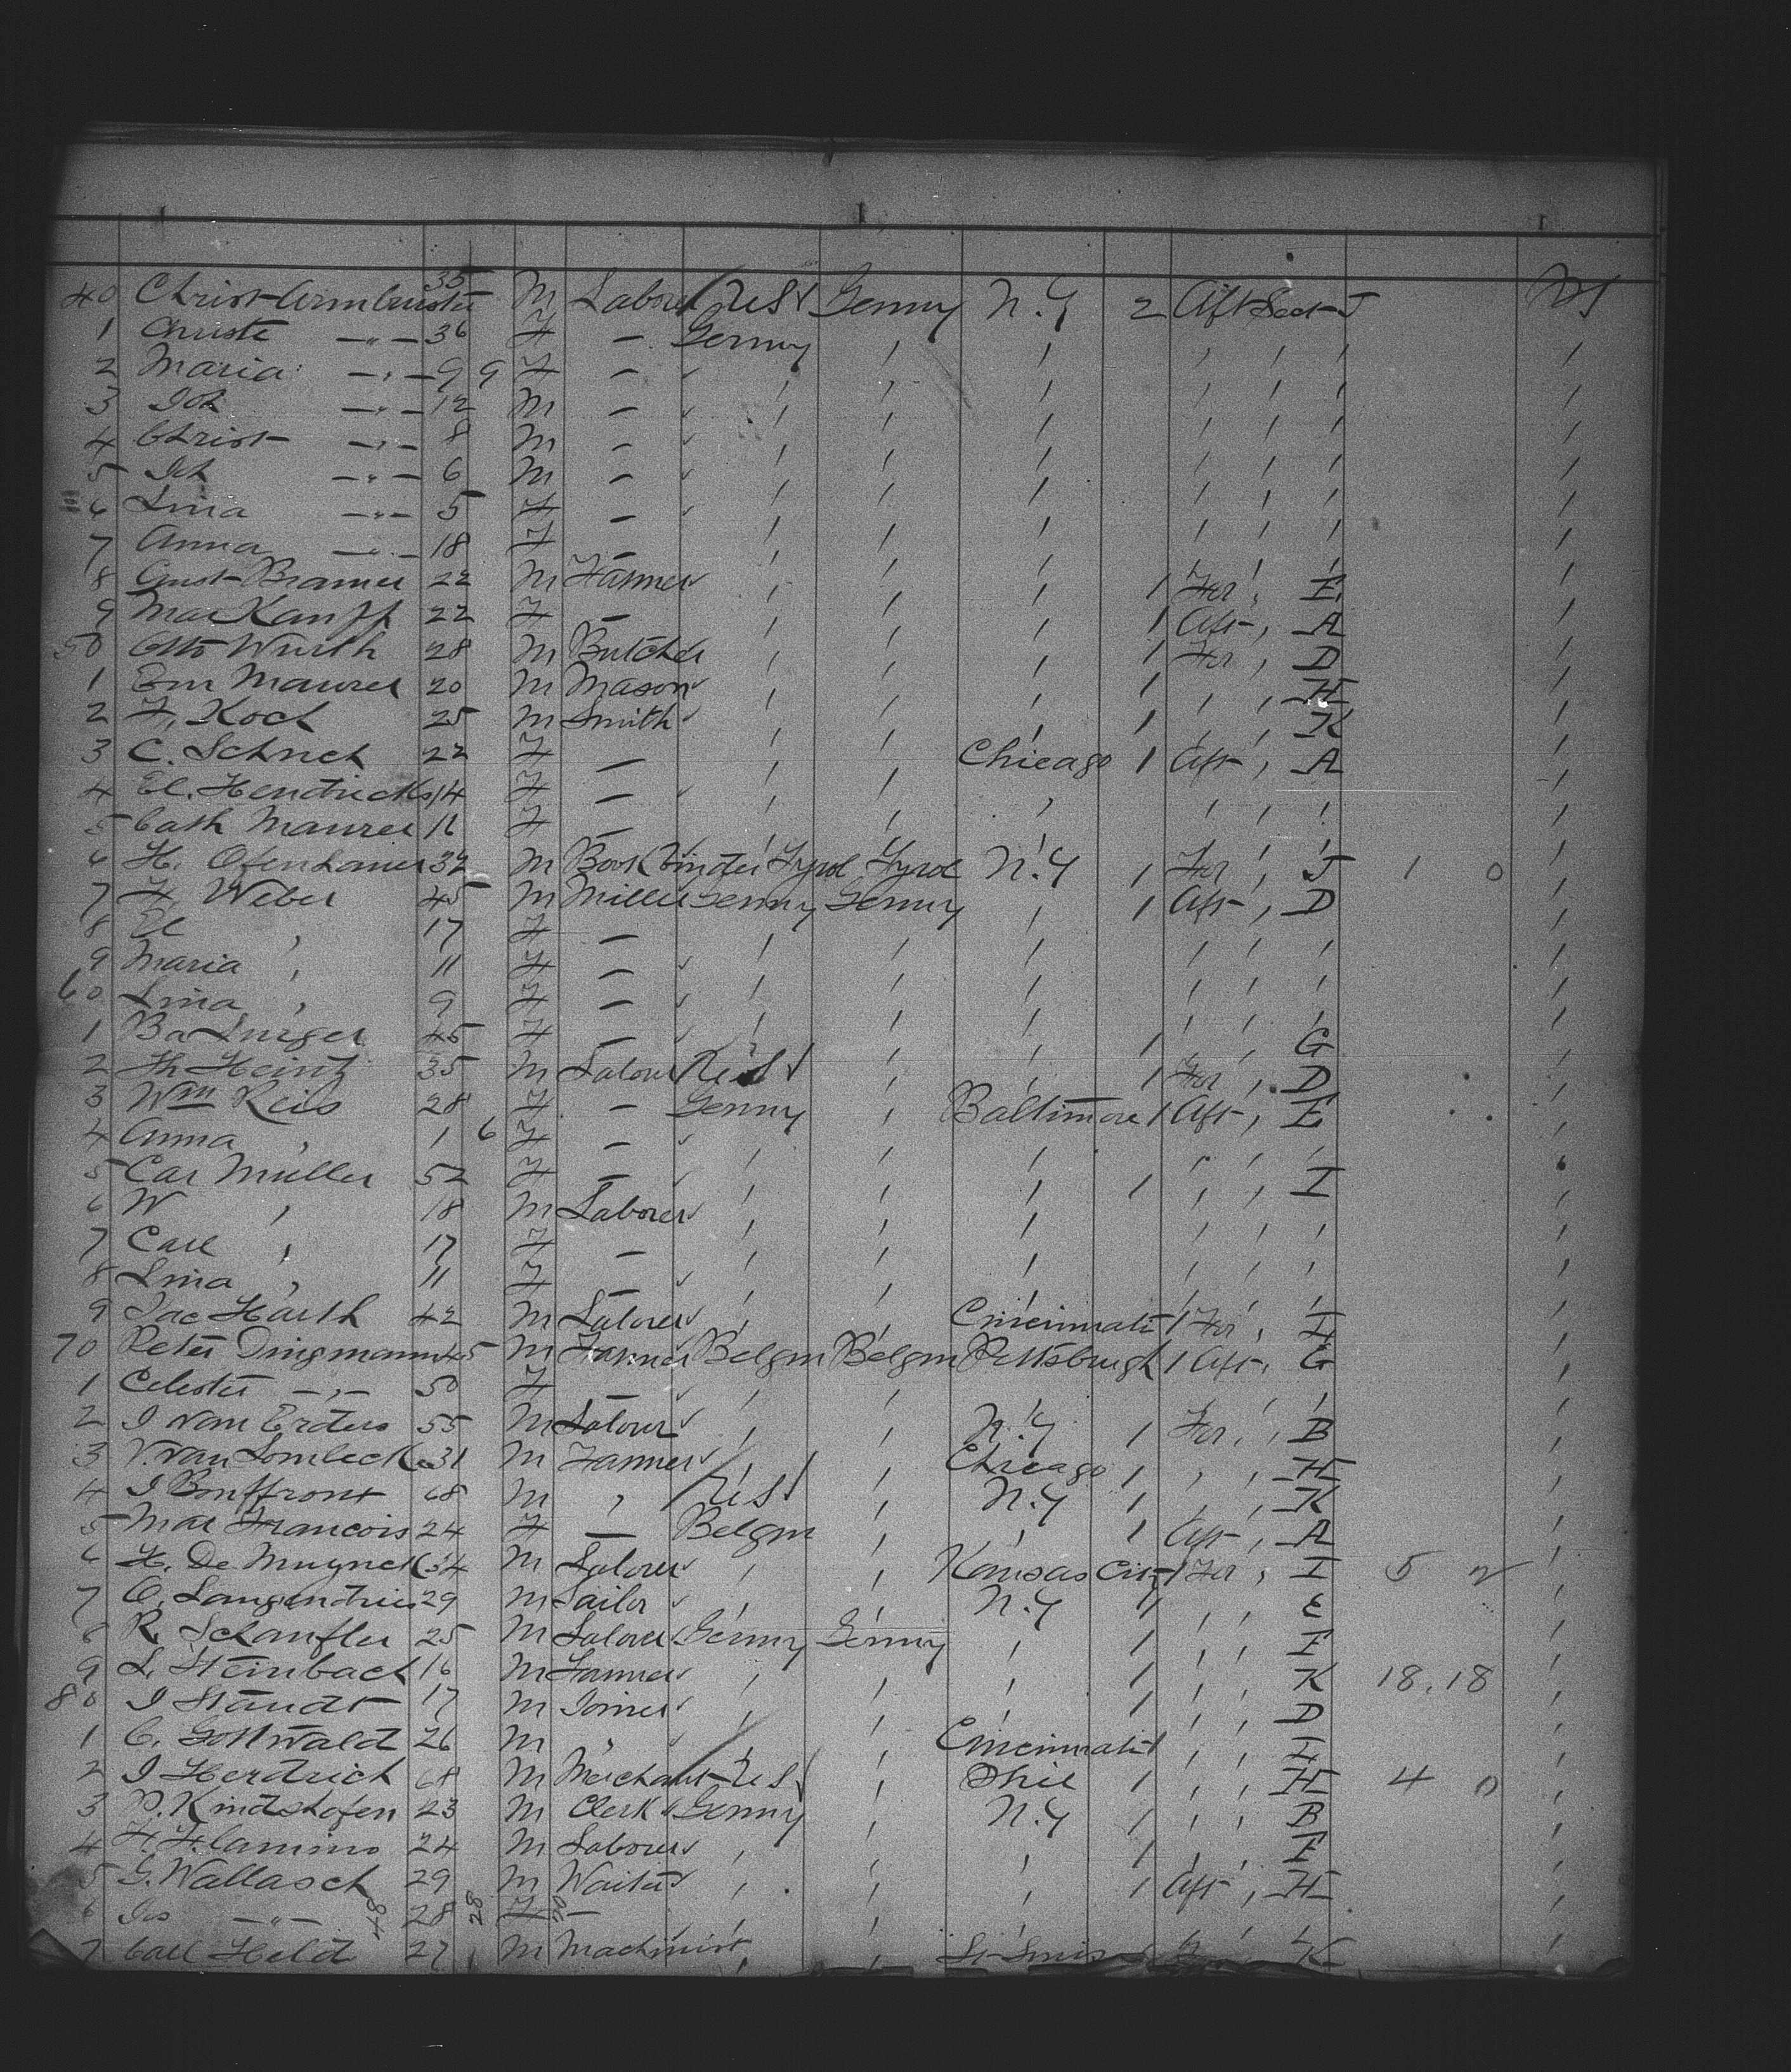 40 Christ Armbruster 35 M Laborer U.S. Germy N.Y 2 Aft Sect J
1 Christe -"- 36 F - Germy ' ' ' ' ' '
2 Maria -"- 9 9 F - ' ' ' ' ' ' '
3 Joh -"- 12 M - ' ' ' ' ' ' '
4 Christ -"- 8 M - ' ' ' ' ' ' '
5 Joh -"- 6 M - ' ' ' ' ' ' '
6 Lina -"- 5 F - ' ' ' ' ' ' '
7 Anna -"- 18 F - ' ' ' ' ' ' '
8 Gust Bramer 22 M Farmer ' ' ' 1 For ' E '
9 Mar Kauff 22 F - ' ' ' 1 Aft ' A '
50 Otto Wurth 28 M Butcher ' ' ' 1 For ' D '
1 Em Maurer 20 M Mason ' ' ' 1 ' ' H '
2 F. Koch 25 M Smith ' ' ' 1 ' ' K '
3 C. Schneh 22 F - ' ' Chicago 1 Aft ' A '
4 El. Hendricks 14 F - ' ' ' ' ' ' '
5 Cath Maurer 16 F - ' ' ' ' ' ' '
6 H. Ofenhauer 32 M Book binder Tyrol Tyrol N.Y 1 For ' J 1 0 '
7 F Weber 45 M Miller Germy Germy ' 1 Aft ' D '
8 El ' 17 F - ' ' ' ' ' ' '
9 Maria ' 11 F - ' ' ' ' ' ' '
60 Lina ' 9 F - ' ' ' ' ' ' '
1 Ba Luiger 45 F - ' ' ' 1 ' ' G '
2 Th Heintz 35 M Laborer U.S. ' ' 1 For ' D '
3 Wm Reis 28 F - Germy ' Baltimore 1 Aft ' E '
4 Anna ' 1 6 F - ' ' ' ' ' ' '
5 Car Müller 52 F - ' ' ' 1 ' ' I '
6 W ' 18 M Laborer ' ' ' ' ' ' '
7 Carl ' 17 F - ' ' ' ' ' ' '
8 Lina ' 11 F - ' ' ' ' ' ' '
9 Jac Harth 42 M Laborer ' ' Cincinnati 1 For '
70 Peter Dingmann 45 M Farmer Belgm Belgm Pittsburgh 1 Aft ' G '
1 Celester -"- 50 F ' ' ' ' ' ' '
2 J van Erdens 55 M Laborer ' ' N.Y 1 For ' B '
3 V. van Lombeck 31 M Farmer ' ' Chicago 1 ' ' H '
4 J Bonffront 68 M ' U.S. ' N.Y 1 ' ' K '
5 Mar Francois 24 F - Belgm ' ' 1 Aft ' A '
6 H. De Muynck 34 M Laborer ' ' Kansas City 1 For ' I 5 2 '
7 O. Langendries 29 M Sailor ' ' N.Y 1 ' ' E '
8 R. Schanfler 25 M Laborer Germy Germy ' 1 ' '
9 L. Steinbach 16 M Farmer ' ' ' 1 ' ' K 18.18 '
80 J Staudt 17 M Joiner ' ' ' 1 ' ' D '
1 C. Gottwald 26 M " ' ' Cincinnati 1 ' '
2 J Herdrich 68 M Merchant U.S. ' Ohio 1 ' ' H 4 0 '
3 P. Kindshofen 23 M Clerk Germy ' N.Y 1 ' ' B '
4 F. Flamino 24 M Laborer ' ' ' 1 ' '
5 G. Wallasch 29 M Waiter ' ' ' 1 Aft ' H '
6 -"- 48 28 28 F 20 - ' ' ' ' ' ' '
7 Carl Held 27 M Machinist ' ' St Louis K '